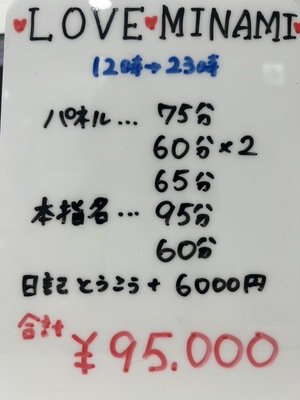 ♥LOVE♥MINAMI♥
12時→23時
パネル... 75分
60分×2
65分
本指名... 95分
60分
日記とうこう+ 6000円
合計
¥95.000